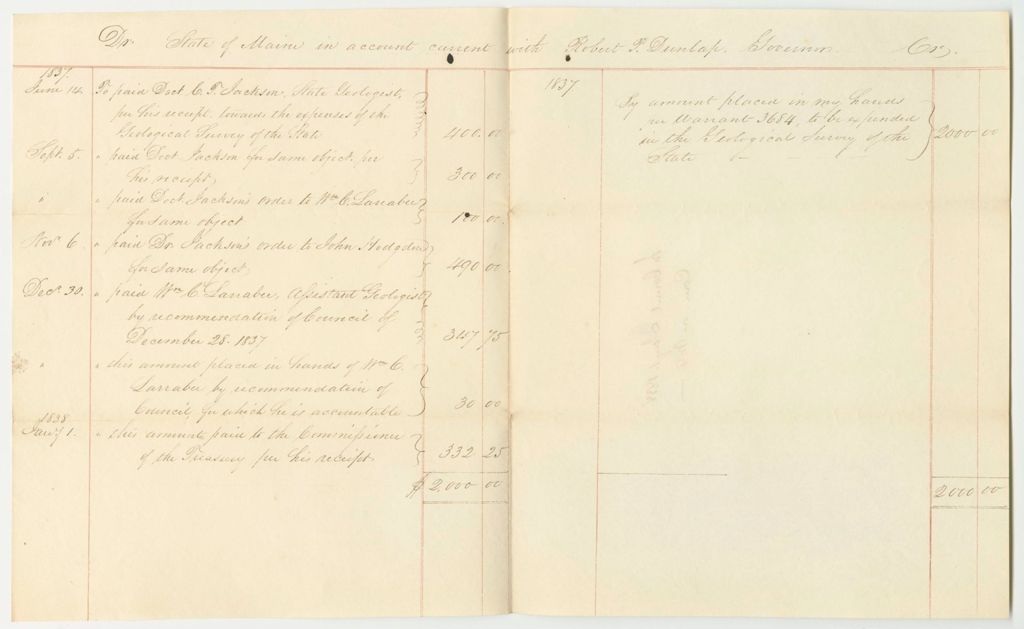 Dr. State of Maine in account current with Robert P. Dunlap, Governor. Cr.
1837.
June 14. To paid Doct. C. T. Jackson, State Geologist,
per his receipt, towards the expenses of the
Geological Survey of the State 400.00
Sept. 5. " paid Doct Jackson for same object per
his receipt, 300 00
" " paid Doct. Jackson's order to Wm C. Larrabee
for same object 100 00.
Nov. 6. " paid Dr. Jackson's order to John Hodgdon
for same object, 490 00.
Decr. 30. " paid Wm C. Larrabee, Assistant Geologist
by recommendation of Council of
December 28. 1837 347 75
" " this amount placed in hands of Wm C.
Larrabee by recommendation of
Council, for which he is accountable 30 00
1838
Jany 1. " this amount paid to the Commissioner
of the Treasury per his receipt 332 25
$ 2,000 00
1837
By amount placed in my hands
per Warrant 3654, to be expended
in the Geological Survey of the
State 2000 00
2000 00